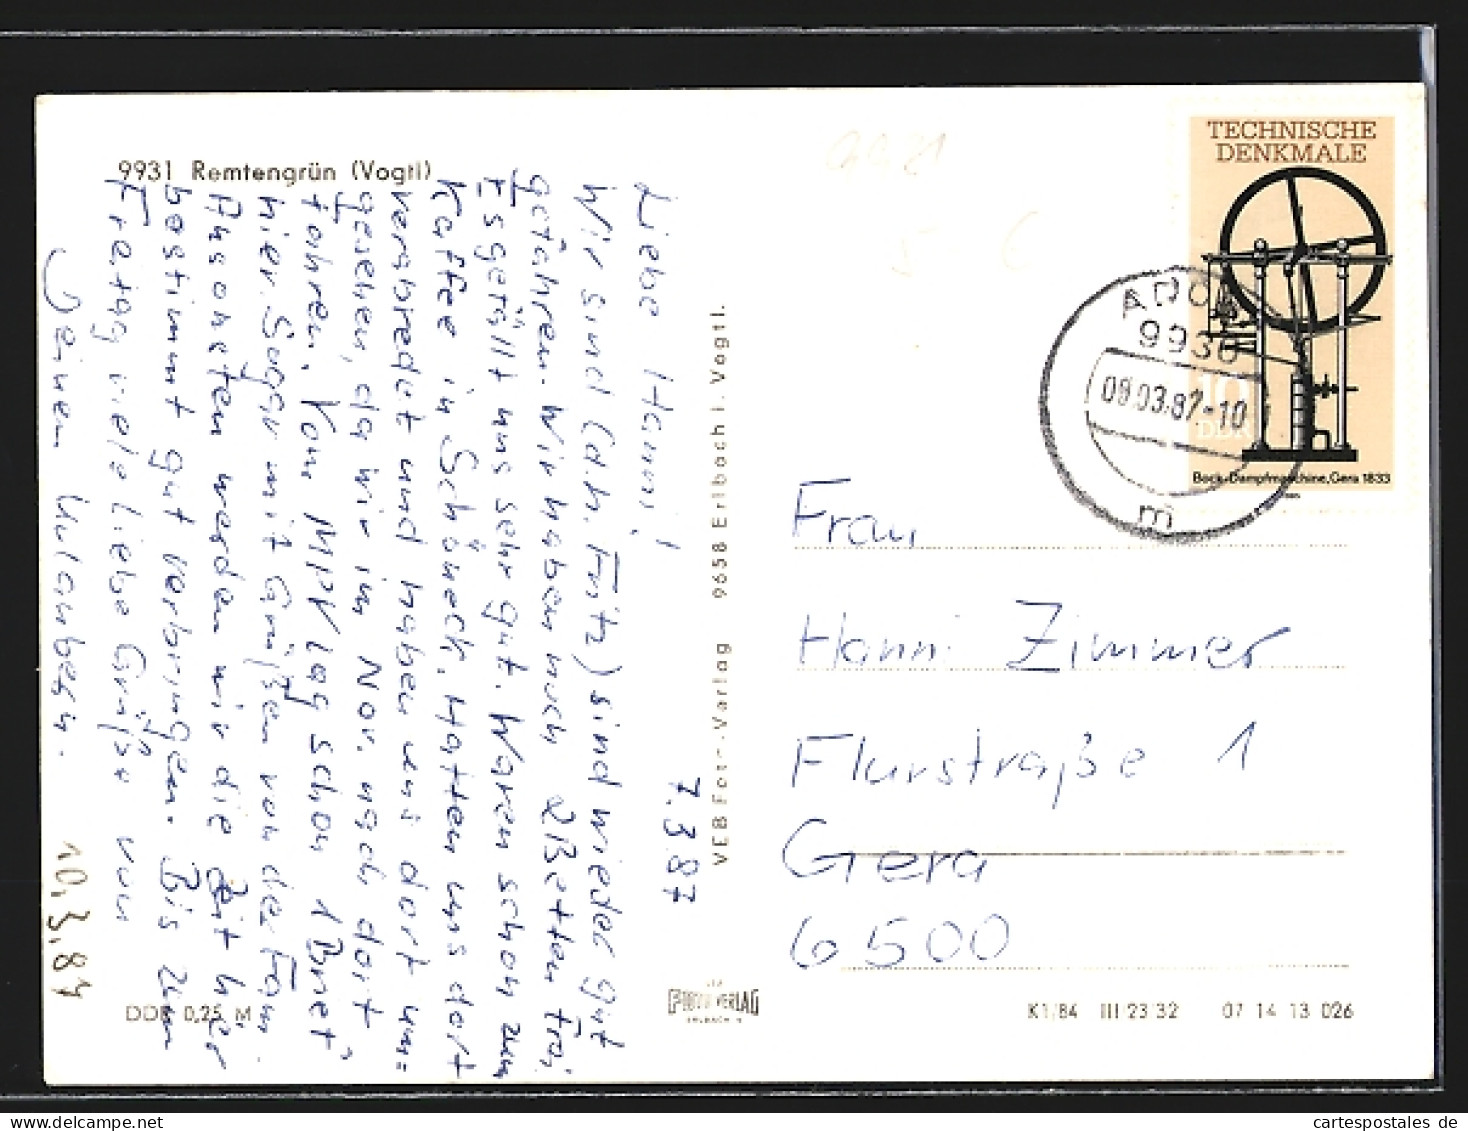 9931 Remtengrün (Vogtl)
7.3.87
Liebe Hanni!
Wir sind (d.h. Fritz) sind wieder gut
gefahren. Wir haben noch 2 Betten frei
Es gefällt uns sehr gut. Waren schon zum
Kaffee in Schöneck. Hatten uns dort
verabredet und haben uns dort um=
gesehen, da wir im Nov. nach dort
fahren. Vom MPV lag schon 1 Brief
hier. Sogar mit Grüßen von der Fam.
Ansonsten werden wir die Zeit hier
bestimmt gut verbringen. Bis zum
Freitag viele liebe Grüße von
Deinen
10.3.87
DDR 0,25 M
VEB Foto-Verlag 9658 Erlbach i. Vogtl.
FOTO VERLAG
ERLBACH V
TECHNISCHE
DENKMALE
10
DDR
Bock-Dampfmaschine, Gera 1833
1985
ADORF
9930
09.03.87-10
m
Frau
Hanni Zimmer
Flurstraße 1
Gera
6500
K1/84 III/23/32 07 14 13 026
cartespostales.de
cartespostales.de